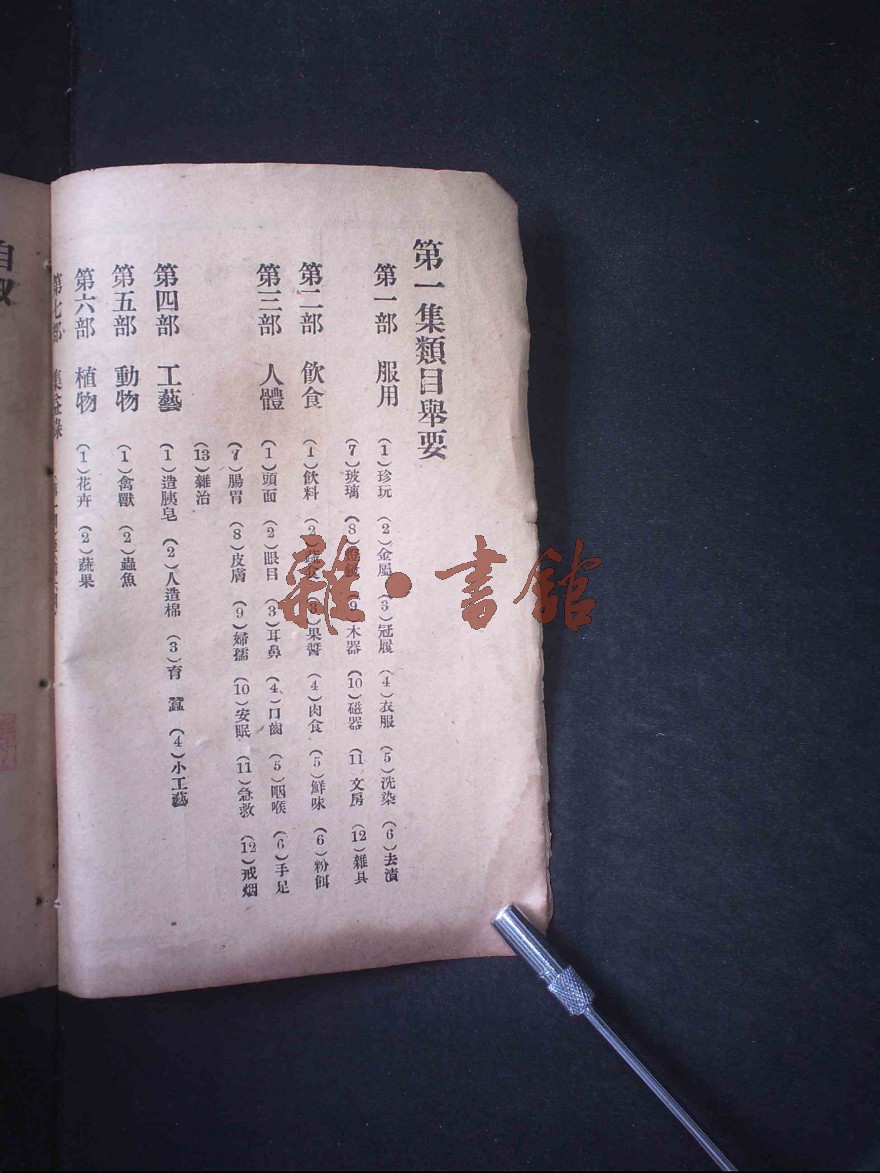 第一集類目舉要
第一部 服用 (1)珍玩 (2)金屬 (3)冠履 (4)衣服 (5)洗染 (6)去漬
(7)玻璃 (8) (9)木器 (10)磁器 (11)文房 (12)雜具
第二部 飲食 (1)飲料 (2)蔬食 (3)果醬 (4)肉食 (5)鮮味 (6)粉餌
第三部 人體 (1)頭面 (2)眼目 (3)耳鼻 (4)口齒 (5)咽喉 (6)手足
(7)腸胃 (8)皮膚 (9)婦孺 (10)安眠 (11)急救 (12)戒烟
(13)雜治
第四部 工藝 (1)造胰皂 (2)人造棉 (3)育蠶 (4)小工藝
第五部 動物 (1)禽獸 (2)蟲魚
第六部 植物 (1)花卉 (2)蔬果
第七部 集益錄
雜·書館